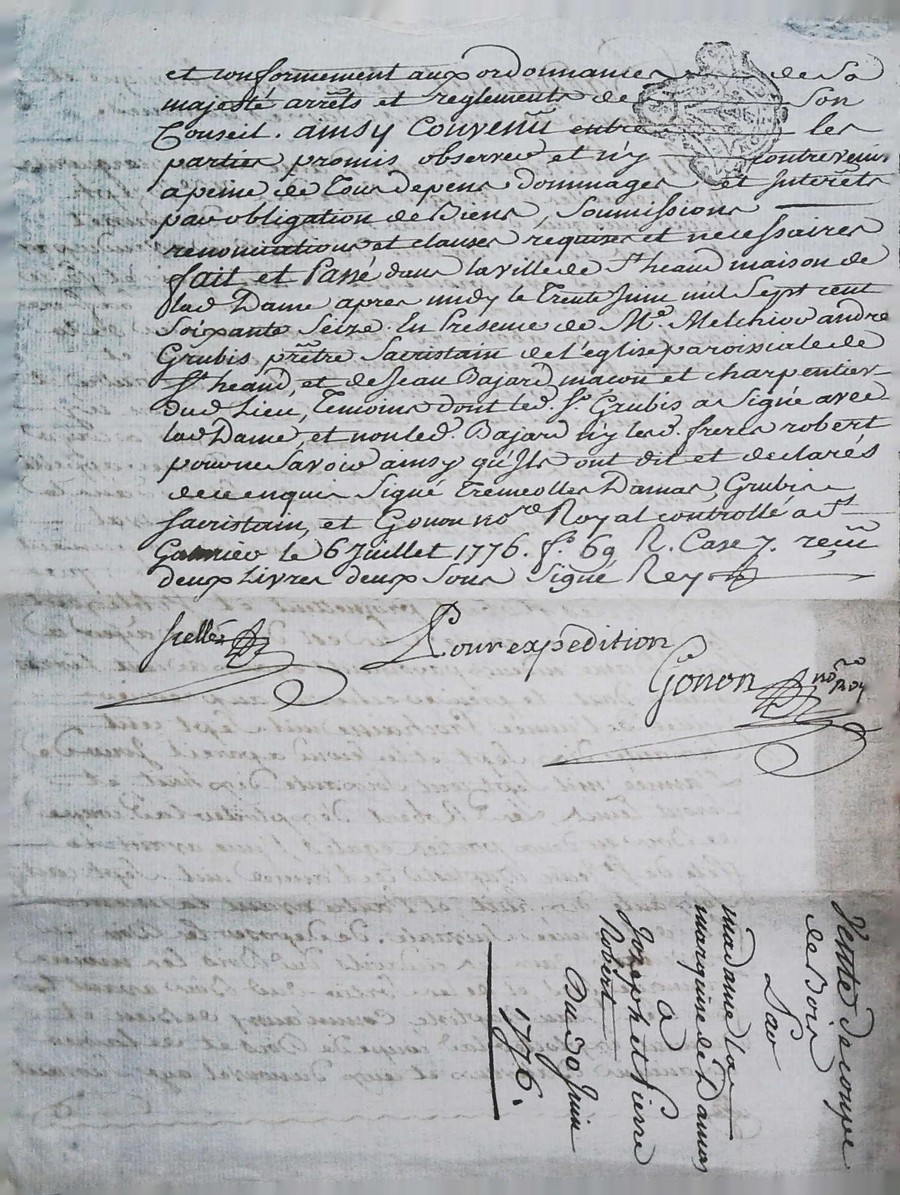 et conformement aux ordonnances de Sa
majesté arrêts et reglements de Son
Conseil. ainsy convenû entre les
parties promis observer et n'y contrevenir
a peine de Tous depens dommages et Interêts
par obligation de Biens, Soumissions
renonciations et clauses requises et necessaires
fait et Passé dans la ville de St heand maison de
lad Dame apres midy le Trente Juin mil Sept cent
Soixante Seize. En Presence de Me. Melchior andré
Grubis prêtre Sacristain de l'eglise paroissiale de
St heand, et de Jean Bajard macon et charpentier
dud Lieu, Temoins dont led. Sr. Grubis a Signé avec
lad Dame, et non led. Bajard n'y lesd. freres robert
pour ne Savoir ainsy qu'Ils ont dit et declarés
de ce enquis Signé Tremeolles Damas, Grubis
Sacristain, et Gonon nore Royal controllé a St
le 6 Juillet 1776. fo. 69 R. Case 7. reçu
deux Livres deux Sous Signé Rey
Scellé
Pour expédition
Gonon nore Roy
Vente de coupe
de Bois
Par
madame la
marquise de Damas
a
Joseph et Pierre
Robert
Du 30 Juin
1776.